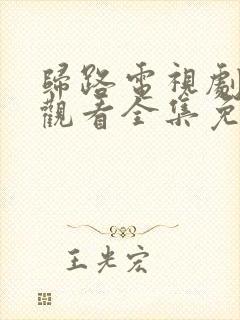 歸路電視劇
觀看全集免
王光宏